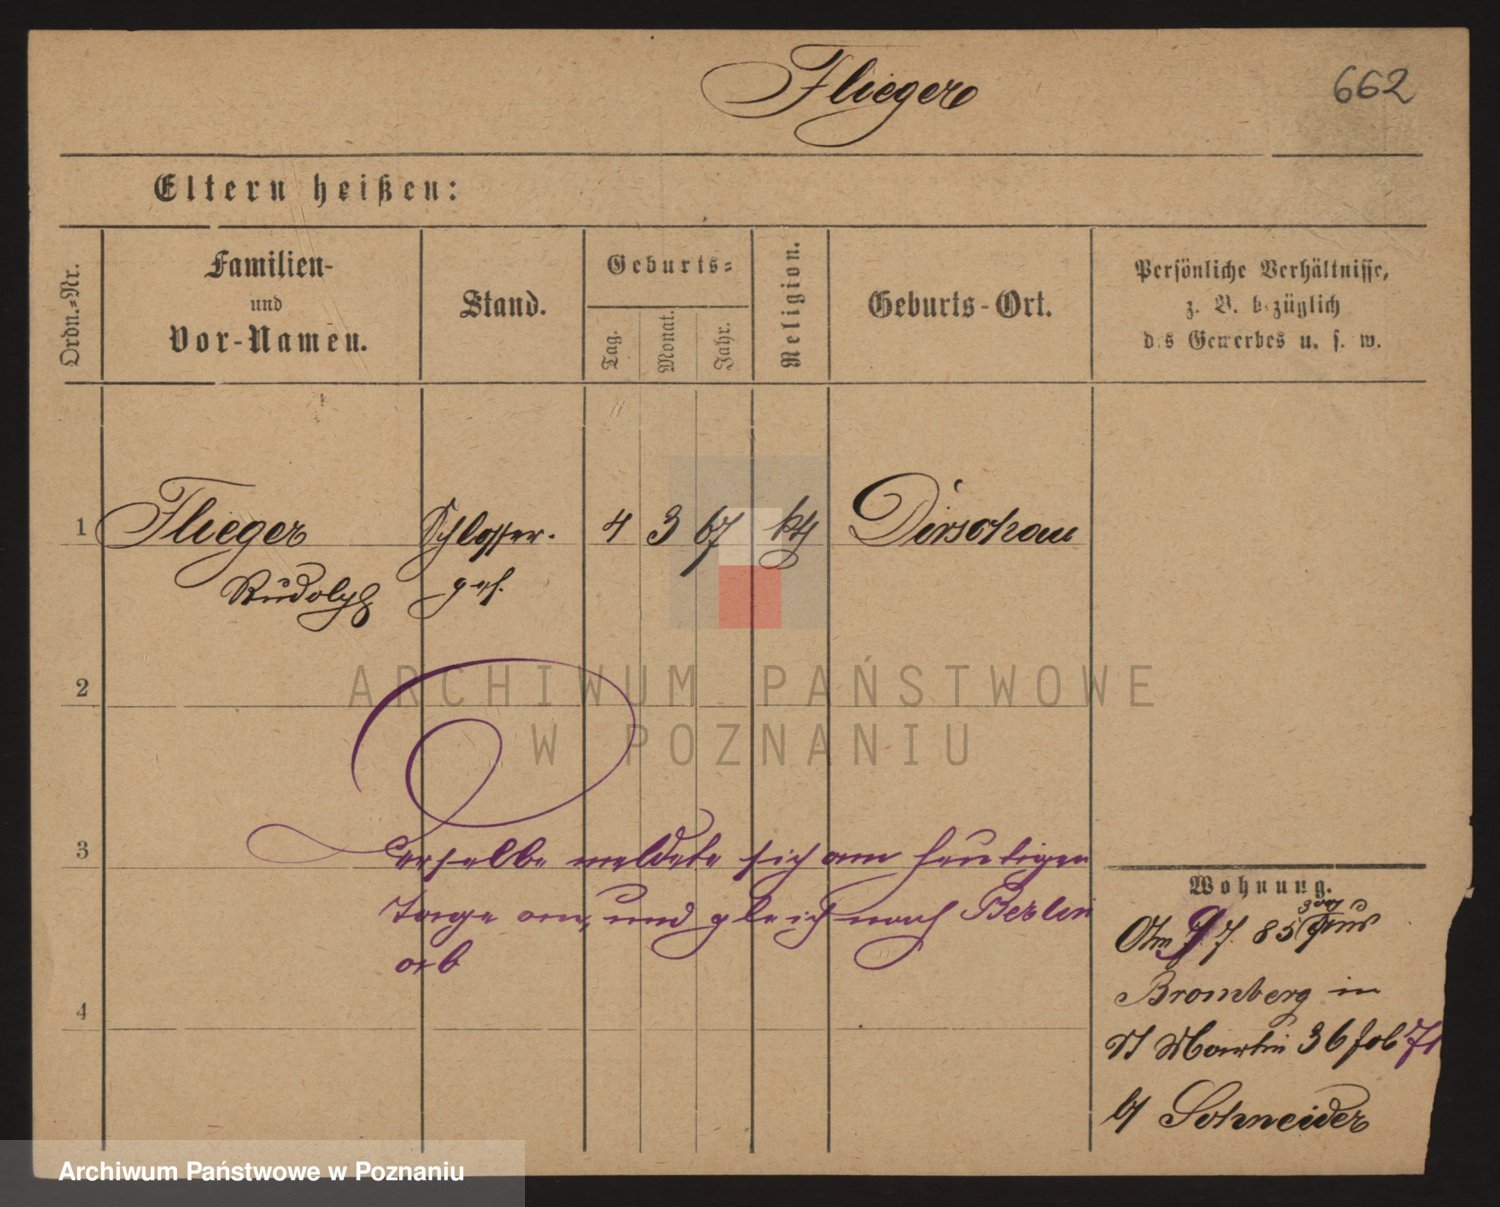 Flieger
662
Eltern heißen:
Ordn.-Nr.
Familien-
und
Vor-Namen.
Stand.
Geburts-
Tag.
Monat.
Jahr.
Religion.
Geburts-Ort.
Persönliche Verhältnisse,
z. B. bezüglich
des Gewerbes u. s. w.
1 Flieger Schlosser- 4 3 67 kth Dirschau
Rudolph ges.
2
ARCHIWUM PAŃSTWOWE
W POZNANIU
3 Derselbe meldete sich am heutigen
Tage an, und gleich nach Berlin
ab
4
Wohnung.
7. 85 aus
Bromberg in
St Martin 36 fol 71
b/ Schneider
Archiwum Państwowe w Poznaniu